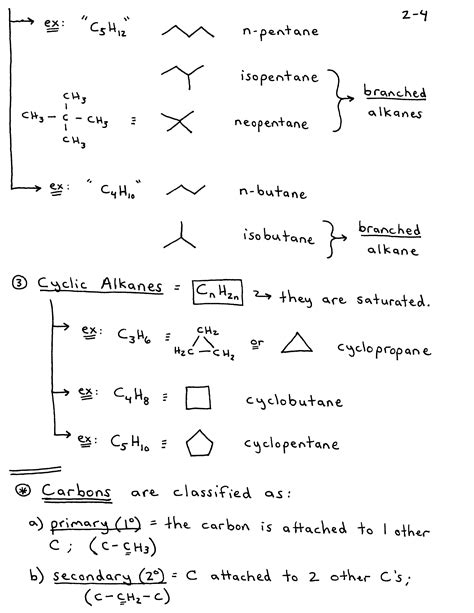 2-4
ex: "C5H12" n-pentane
isopentane
branched alkanes
CH3
CH3 - C - CH3 ≡ neopentane
CH3
ex: "C4H10" n-butane
isobutane branched alkane
③ Cyclic Alkanes = CnH2n → they are saturated.
ex: C3H6 ≡ CH2 H2C - CH2 or cyclopropane
ex: C4H8 ≡ cyclobutane
ex: C5H10 ≡ cyclopentane
* Carbons are classified as:
a) primary (1°) = the carbon is attached to 1 other
C; (C-CH3)
b) secondary (2°) = C attached to 2 other C's;
(C-CH2-C)